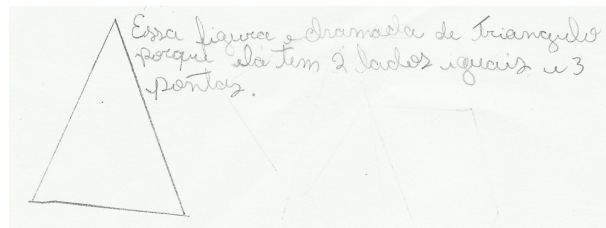 Essa figura e chamada de triangulo
porque ela tem 2 lados iguais e 3
pontas.